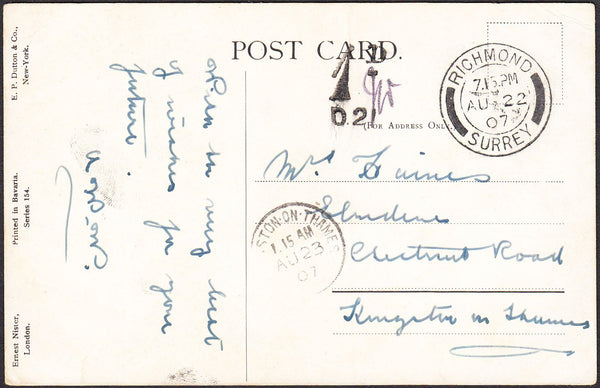 POST CARD.
(FOR ADDRESS ONLY.)
E. P. Dutton & Co.,
New-York.
Printed in Bavaria.
Series 154.
Ernest Nister,
London.
With the very best
of wishes for your
future.
1D
D.21
RICHMOND
7.15 PM
AU 22
07
SURREY
STON-ON-THAMES
1.15 AM
AU 23
07
Haines
Chestnut Road
Kingston on Thames